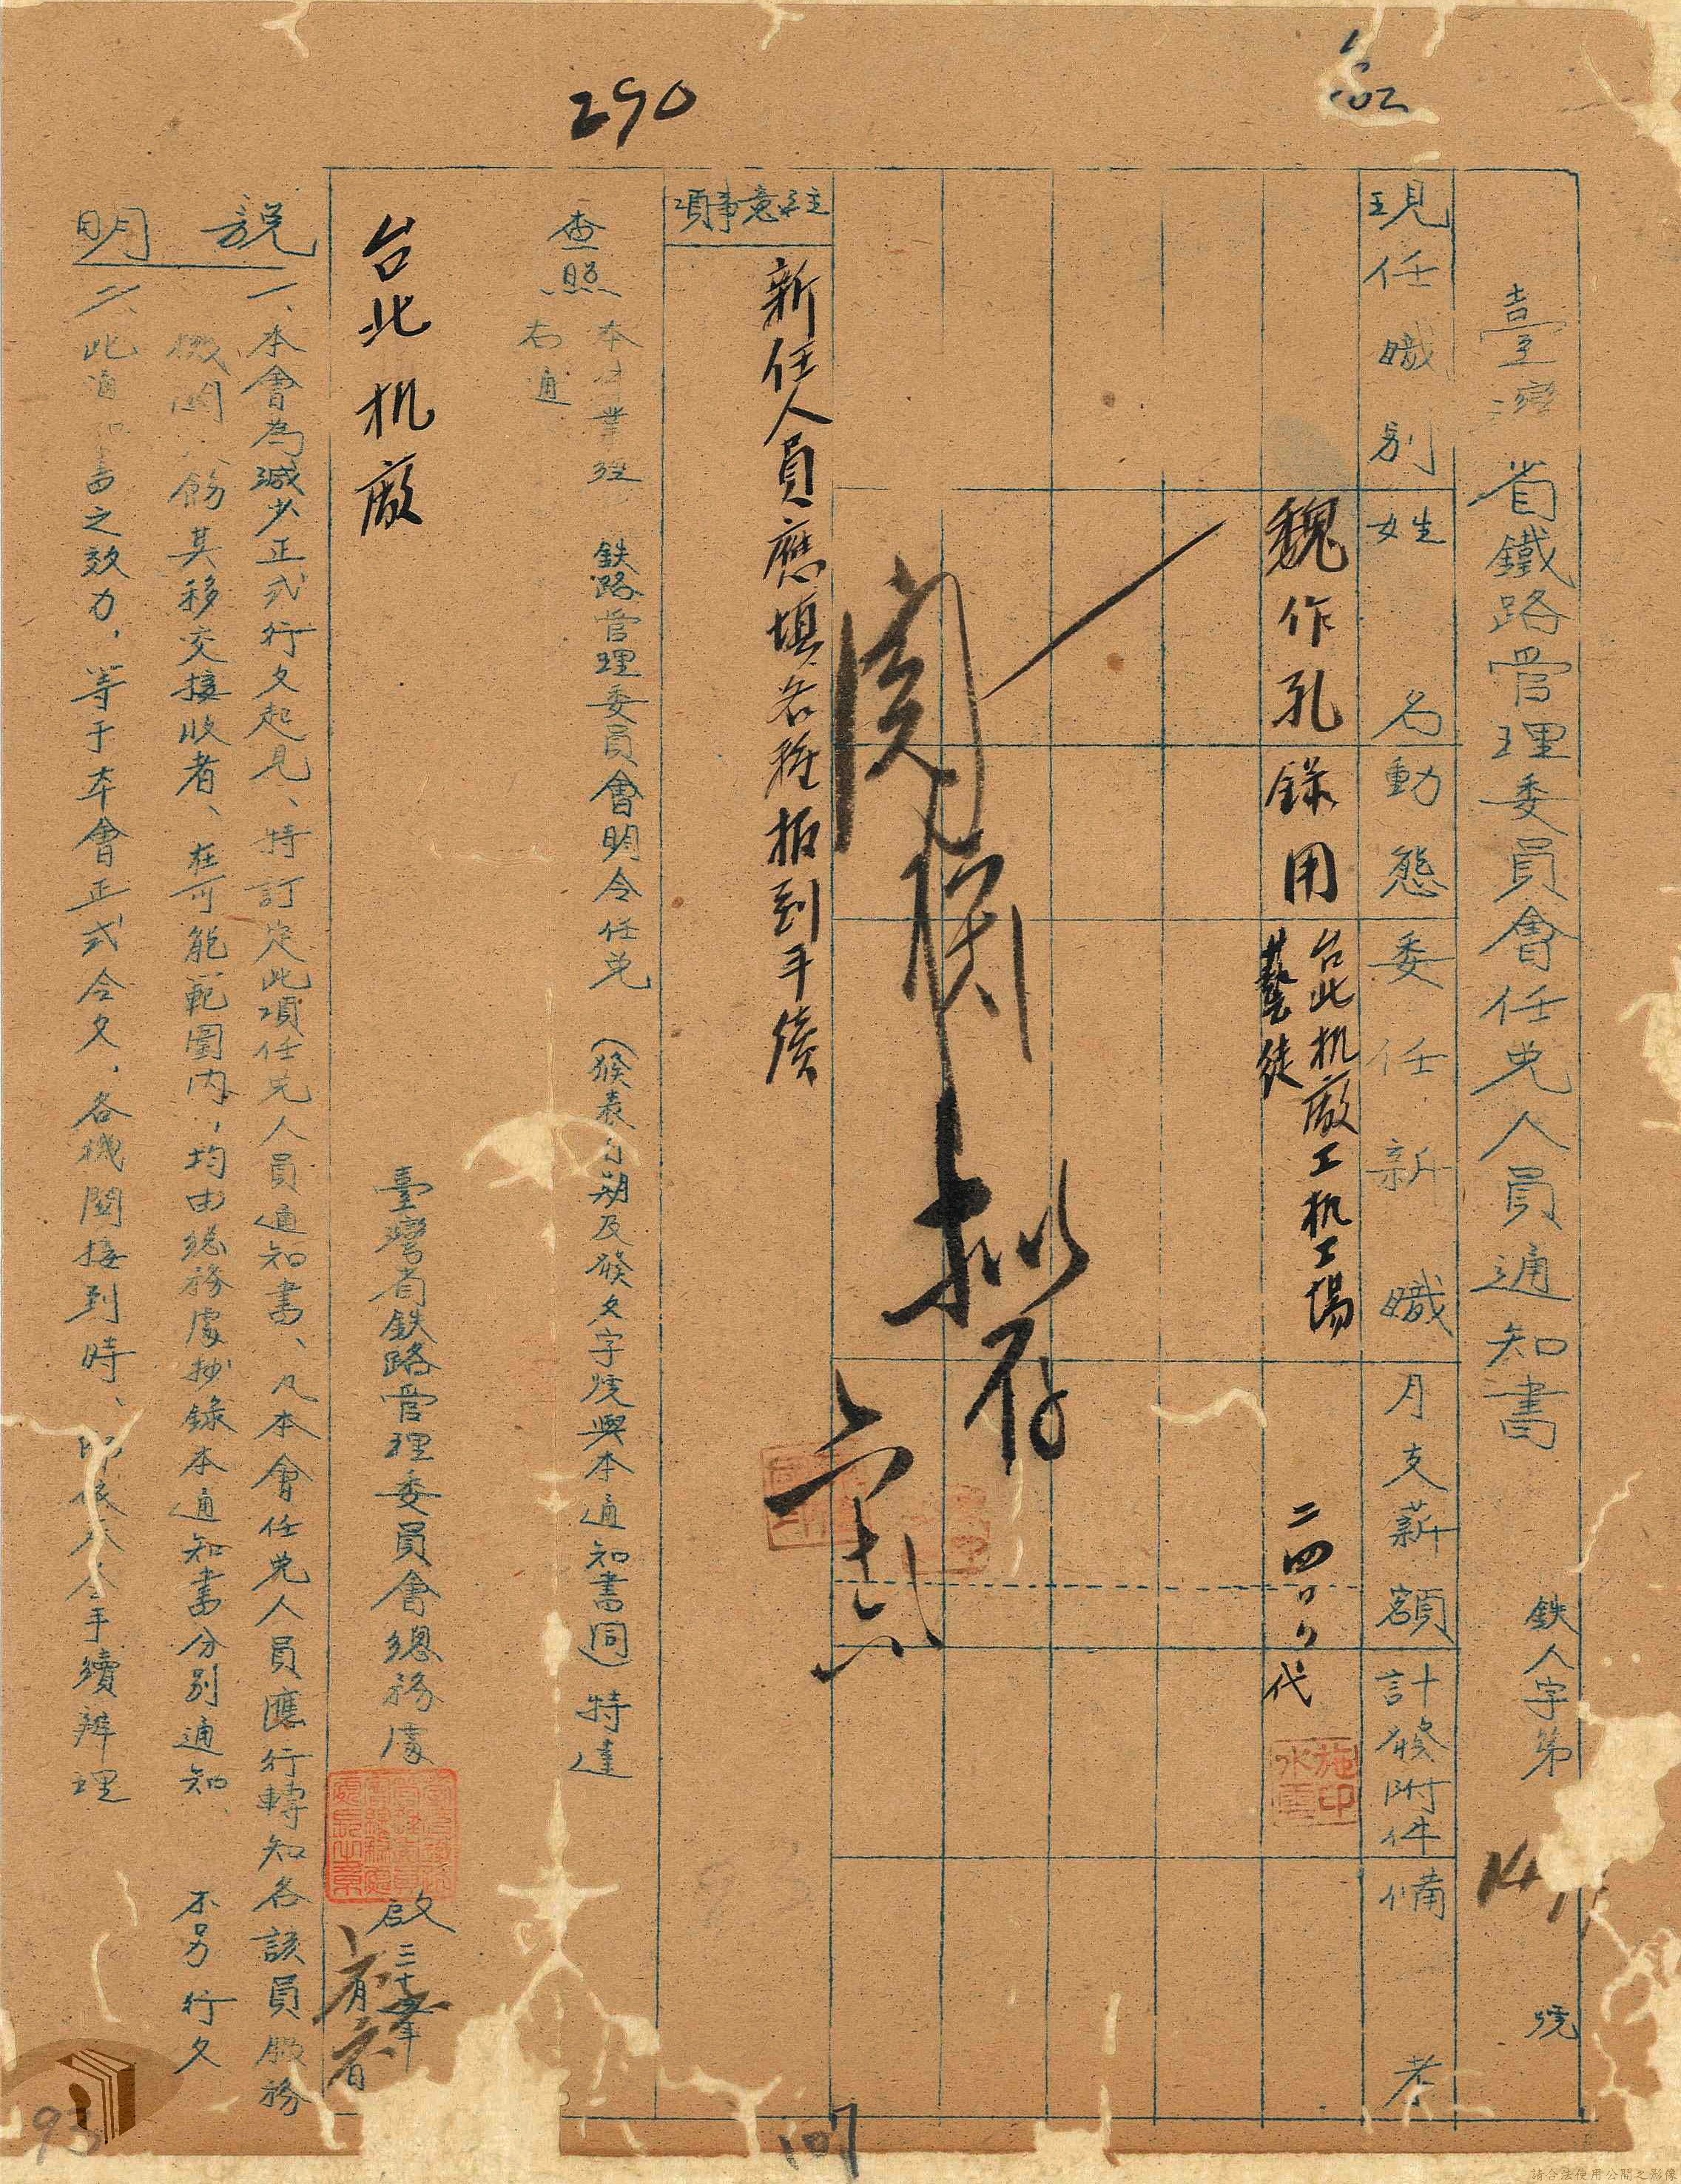 290
臺灣省鐵路管理委員會任免人員通知書
鉄人字第
號
現任職別
姓名
動態
委任新職
月支薪額
計發附件
備考
魏作孔
錄用
台北机廠工机工場
藝徒
二四〇
代
施水雲印
注意事項
新任人員應填各種報到手續
閱後擬存
本件業經鉄路管理委員會明令任免(發表日期及發文字號與本通知書同)特達
查照
右通
台北机廠
臺灣省鉄路管理委員會總務處啟
二十五年
月
日
說明
一、本會為減少正式行文起見、特訂定此項任免人員通知書、凡本會任免人員應行轉知各該員服務
機関飭其移交接收者、在可能範圍内、均由總務處抄錄本通知書分別通知、不另行文
二、此通知書之效力，等于本會正式令文，各機関接到時、即依本令手續辦理
93
107
請合法使用公開之影像